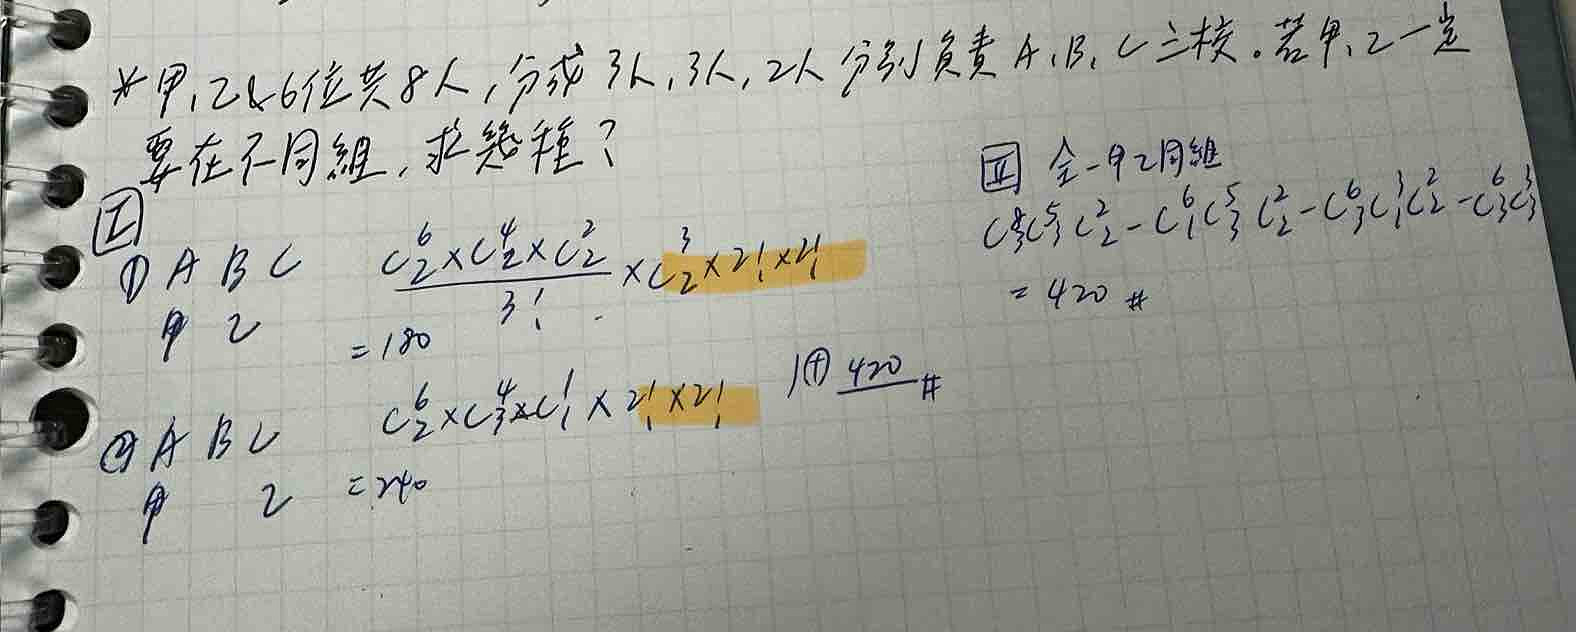 *甲,乙&6位共8人,分成3人,3人,2人分別負責A,B,C三校。若甲,乙一定
要在不同組,求幾種?
I
① A B C
甲 乙
C⁶₂×C⁴₂×C²₂ / 3! ×C³₂×2!×2!
=180
② A B C
甲 乙
C⁶₂×C⁴₃×C¹₁×2!×2!
=240
420 #
II 全-甲乙同組
C⁸₃C⁵₃C²₂-C⁶₁C⁵₃C²₂-C⁶₃C³₁C²₂-C⁶₃C³₃
=420 #